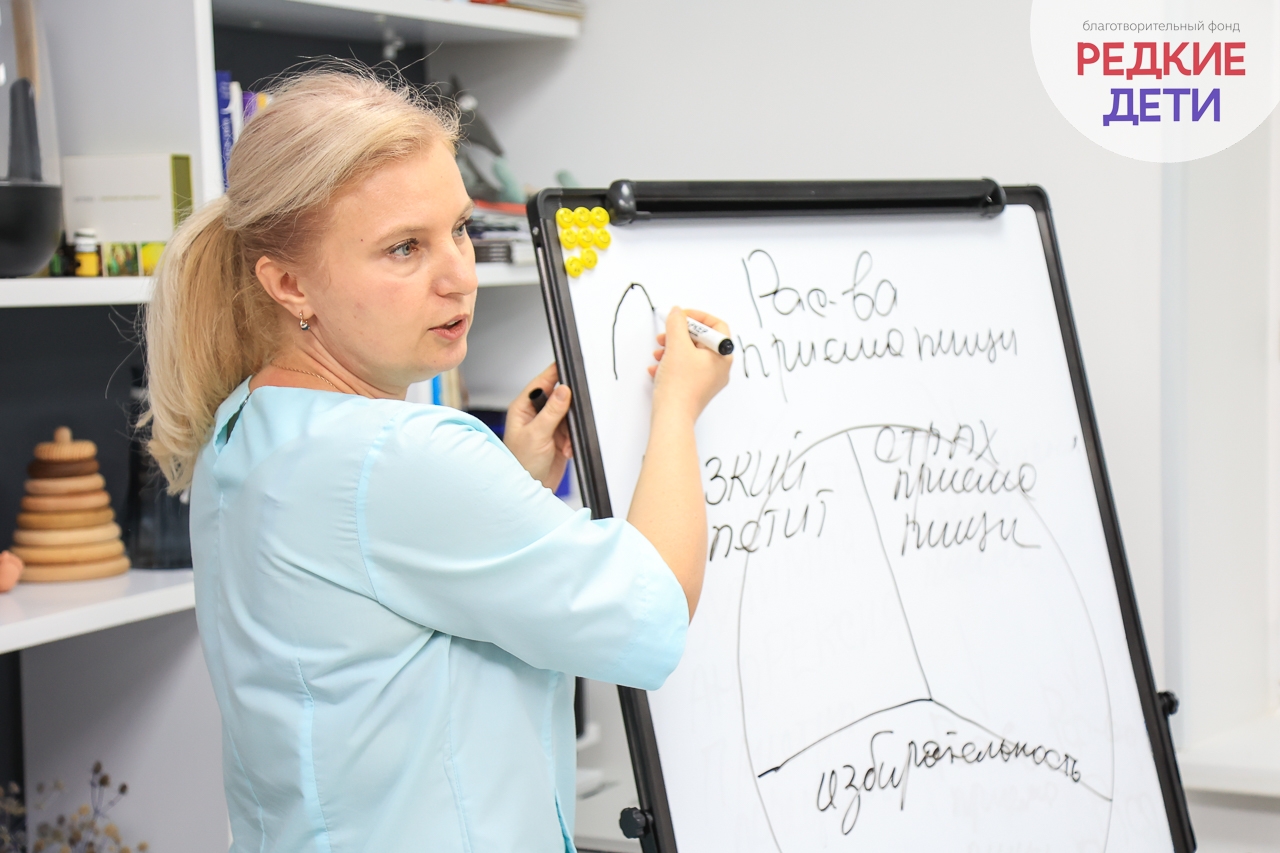 благотворительный фонд
РЕДКИЕ
ДЕТИ
Рас-ва
приема пищи
зкий
петит
страх
приема
пищи
избирательность